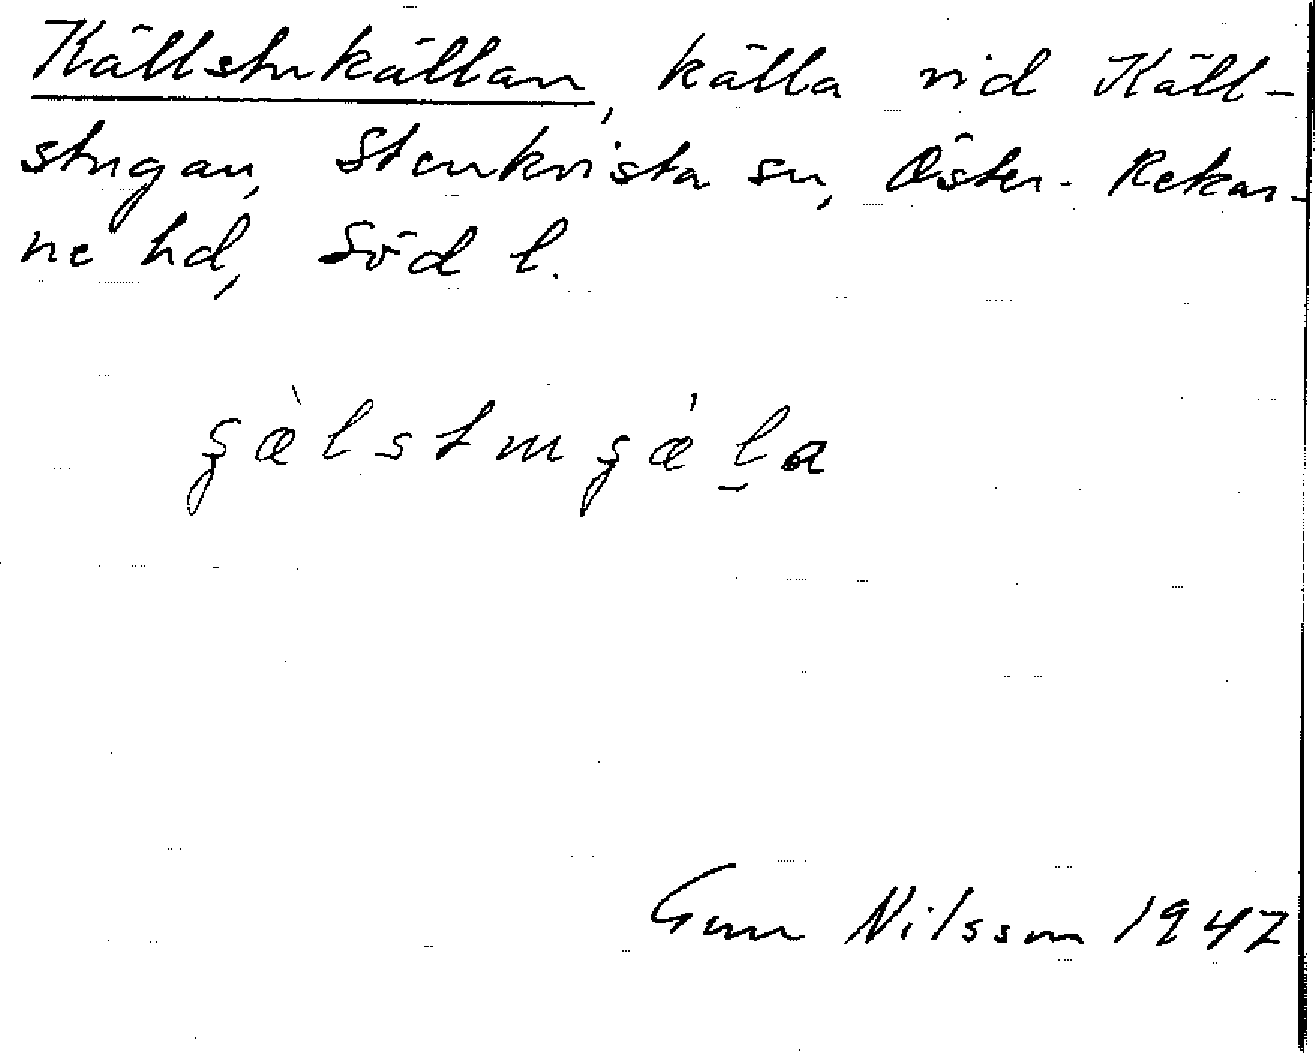 Källstukällan, källa vid Käll-
stugan, Stenkvista sn, Öster-Rekar-
ne hd, Söd l.
Gun Nilsson 1947